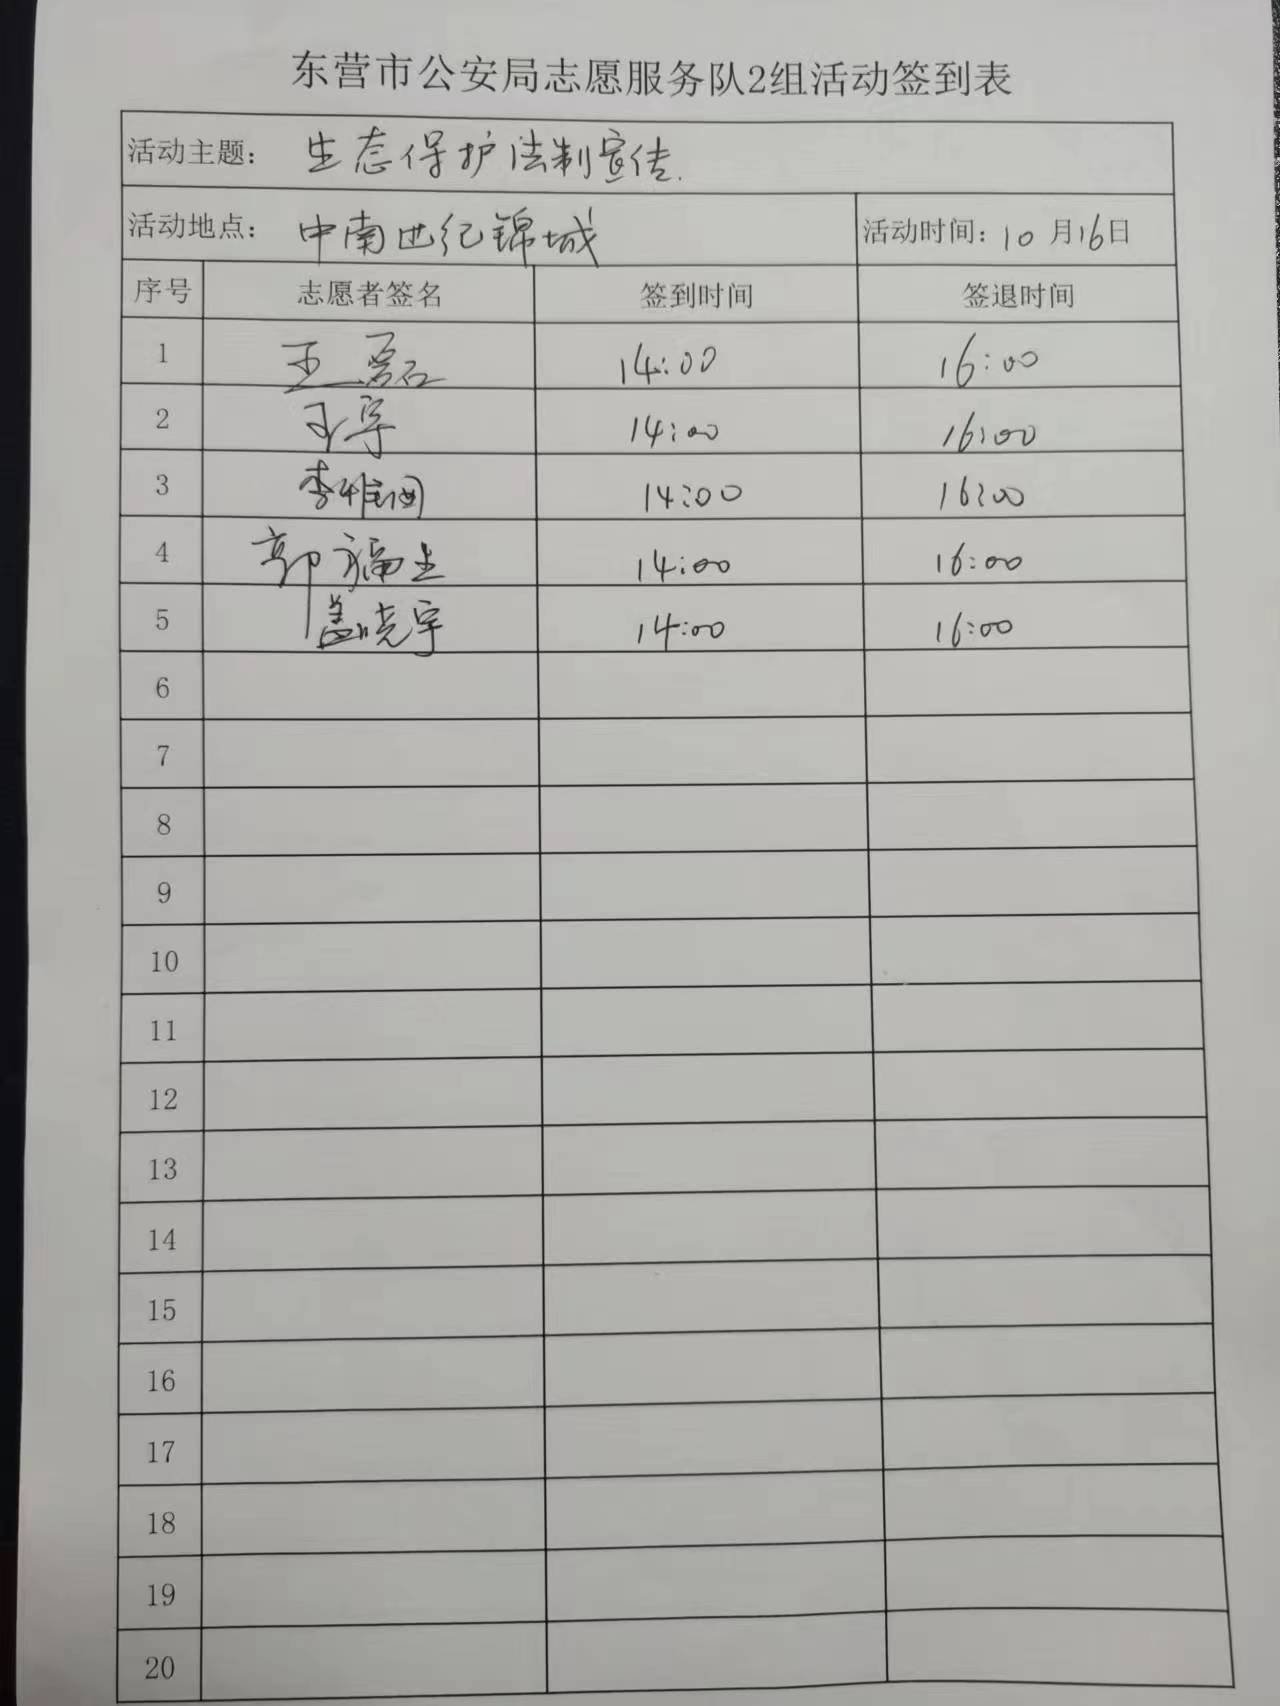 东营市公安局志愿服务队2组活动签到表
活动主题： 生态保护法制宣传.
活动地点： 中南世纪锦城 活动时间：10月16日
序号 志愿者签名 签到时间 签退时间
1 王磊 14:00 16:00
2 王宇 14:00 16:00
3 李雅 14:00 16:00
4 郭福生 14:00 16:00
5 盖晓宇 14:00 16:00
6
7
8
9
10
11
12
13
14
15
16
17
18
19
20